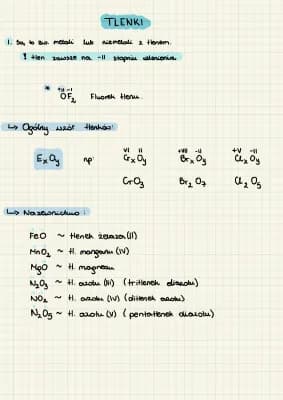 TLENKI
1. Są to zw. metali lub niemetali z tlenem.
! tlen zawsze na -II stopniu utlenienia
* +II -I
OF₂ Fluorek tlenu.
↳ Ogólny wzór tlenków:
VI II +VII -II +V -II
EₓOᵧ np: CrₓOᵧ BrₓOᵧ ClₓOᵧ
CrO₃ Br₂O₇ Cl₂O₅
↳ Nazewnictwo:
FeO ~ tlenek żelaza (II)
MnO₂ ~ tl. manganu (IV)
MgO ~ tl. magnezu
N₂O₃ ~ tl. azotu (III) (tritlenek diazotu)
NO₂ ~ tl. azotu (IV) (ditlenek azotu)
N₂O₅ ~ tl. azotu (V) (pentatlenek diazotu)